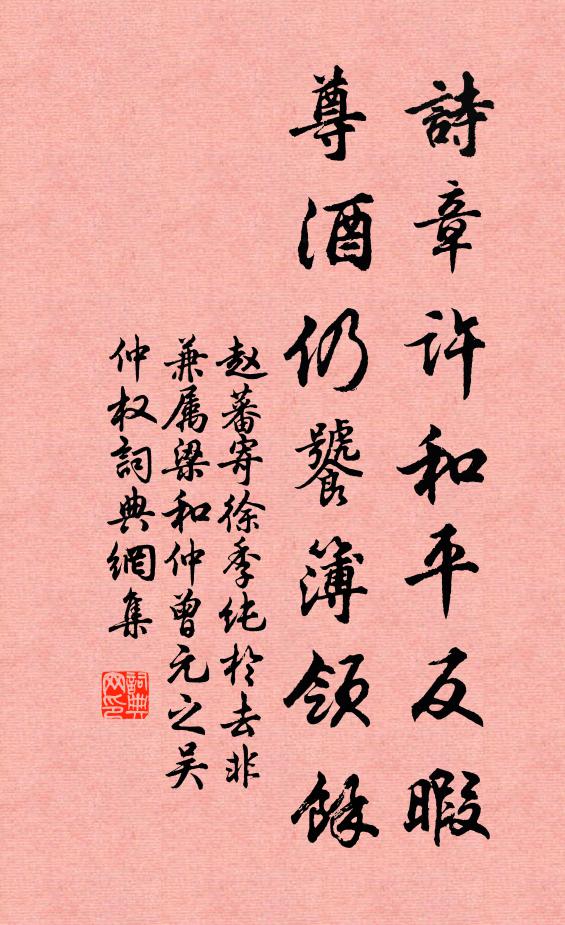 詩章許和平反暇
尊酒仍饕簿領餘
赵蕃寄徐季纯於去非
兼属梁和仲曾元之吴
仲权詞典網集
詞典
网印